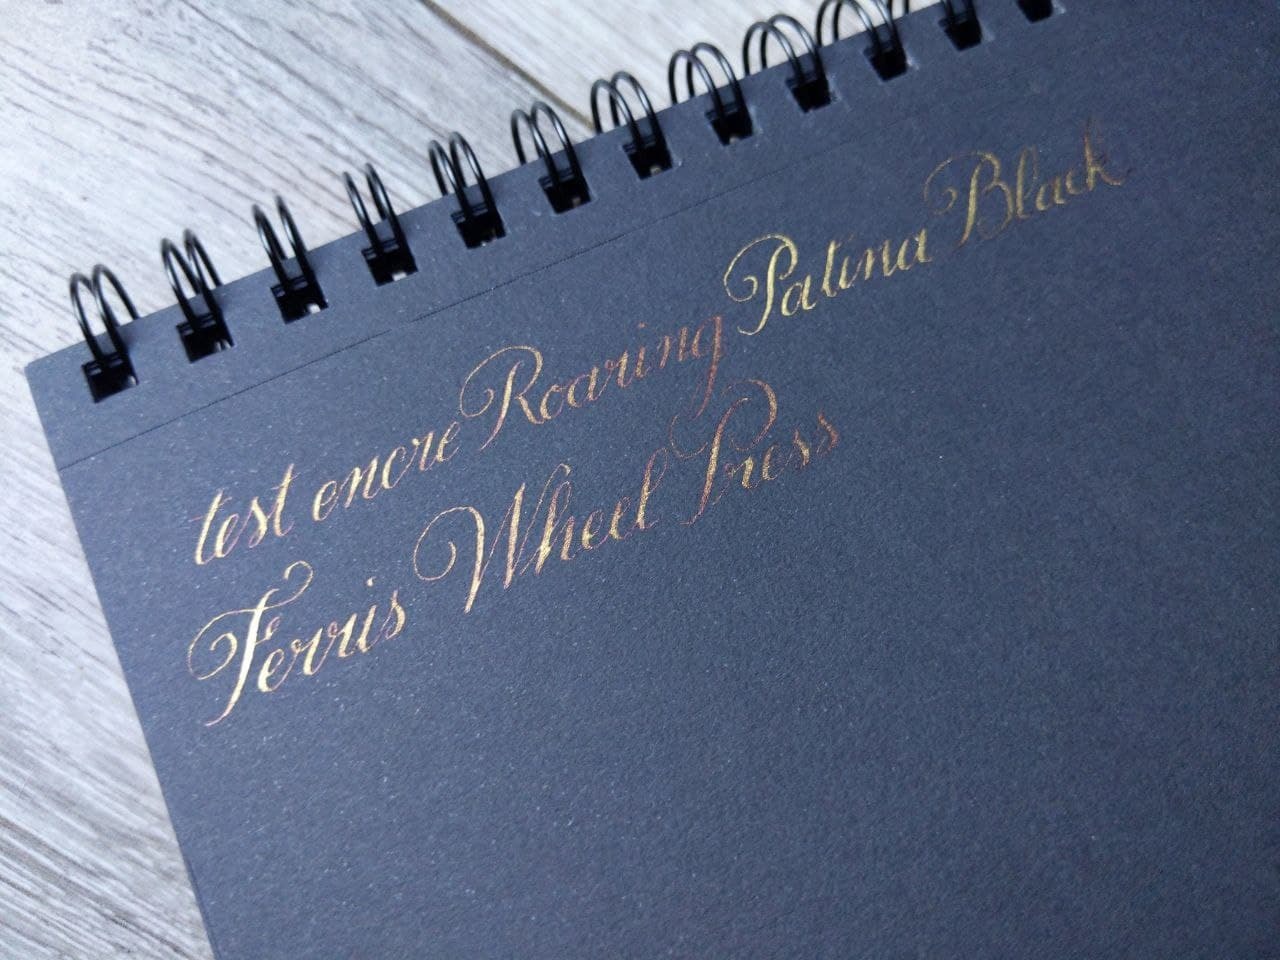 test encre Roaring Patina Black
Ferris Wheel Press